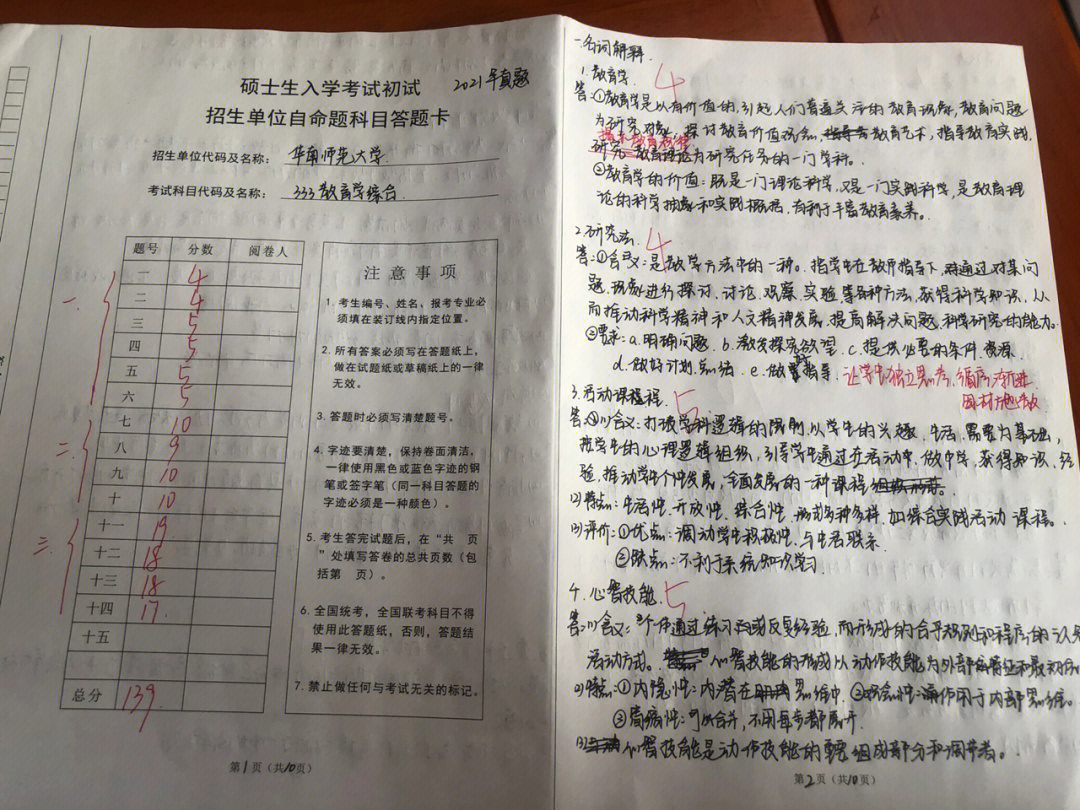 硕士生入学考试初试 2021年真题
招生单位自命题科目答题卡
招生单位代码及名称： 华南师范大学
考试科目代码及名称： 333教育学综合
题号 分数 阅卷人
一. 一 4
二 4
三 5
四 5
五 5
六 5
二. 七 10
八 9
九 10
十 10
三. 十一 19
十二 18
十三 18
十四 17
十五
总分 139
注意事项
1. 考生编号、姓名、报考专业必
须填在装订线内指定位置。
2. 所有答案必须写在答题纸上，
做在试题纸或草稿纸上的一律
无效。
3. 答题时必须写清楚题号。
4. 字迹要清楚，保持卷面清洁，
一律使用黑色或蓝色字迹的钢
笔或签字笔（同一科目答题的
字迹必须是一种颜色）。
5. 考生答完试题后，在“共 页
”处填写答卷的总共页数（包
括第 页）。
6. 全国统考，全国联考科目不得
使用此答题纸，否则，答题结
果一律无效。
7. 禁止做任何与考试无关的标记。
第1页（共10页）
一.名词解释
1. 教育学. 4
答：①教育学是以有价值的，引起人们普遍关注的教育现象，教育问题
为研究对象，探讨教育价值观念，教育艺术，指导教育实践，
揭示教育规律
研究 教育理论为研究任务的一门学科.
②教育学的价值：既是一门理论科学，又是一门实践科学，是教育理
论的科学抽象和实践概括，有利于丰富教育素养。
2. 研究法. 4
答：①含义：是教学方法中的一种。指学生在教师指导下，通过对某问
题、现象进行探讨、讨论、观察、实验等各种方法，获得科学知识，从
而推动科学精神和人文精神发展，提高解决问题，科学研究的能力。
②要求：a.明确问题. b.激发探究欲望. c.提供必要的条件，资源.
d.做好计划，总结. e.做 指导. 让学生独立思考，循序渐进
因材施教
3. 活动课程. 5
答：(1)含义：打破学科逻辑的限制，以学生的兴趣、生活、需要为基础，
按学生的心理逻辑组织，引导学生通过在活动中，做中学，获得知识，经
验，推动学生个性发展，全面发展的一种课程 。
(2)特点：生活性，开放性，综合性，形式多种多样，如综合实践活动课程。
(3)评价：①优点：调动学生积极性，与生活联系.
②缺点：不利于系统知识学习.
4. 心智技能. 5
答：(1)含义：个体通过练习或反复经验，而形成的合乎规则和程序的认知
活动方式。 心智技能的形成以动作技能为外部
(2)特点：①内隐性：内潜在 思维中. ②观念性：作用于内部思维。
③简缩性：可以合并，不用每步都展开.
(3) 心智技能是动作技能的 组成部分和调节者。
第2页（共10页）